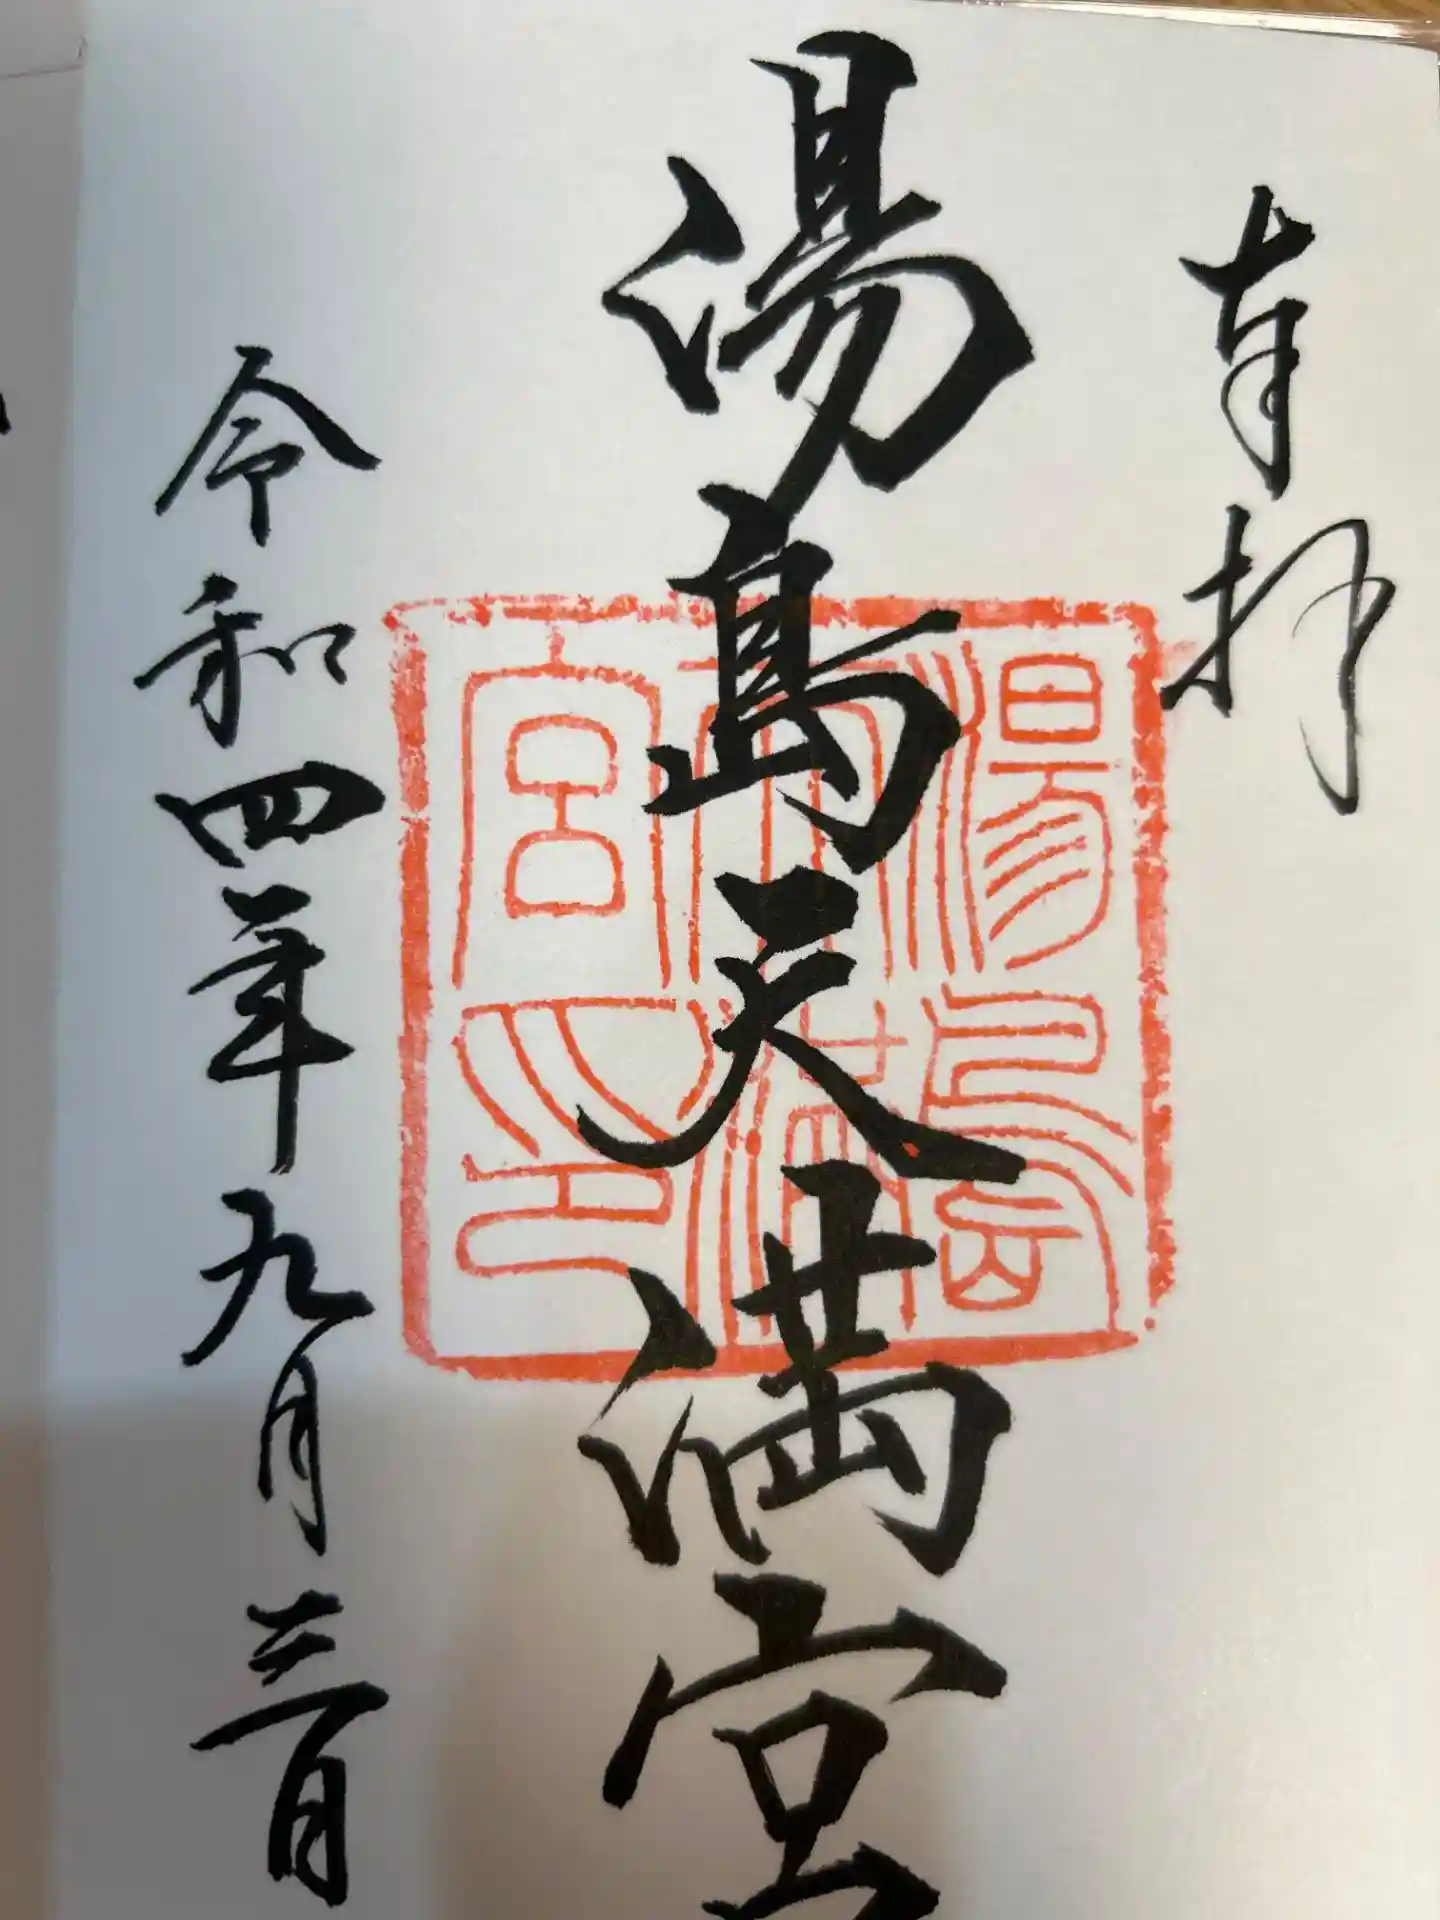 奉拝
湯島天満宮
令和四年九月三日
湯島
天満
宮印